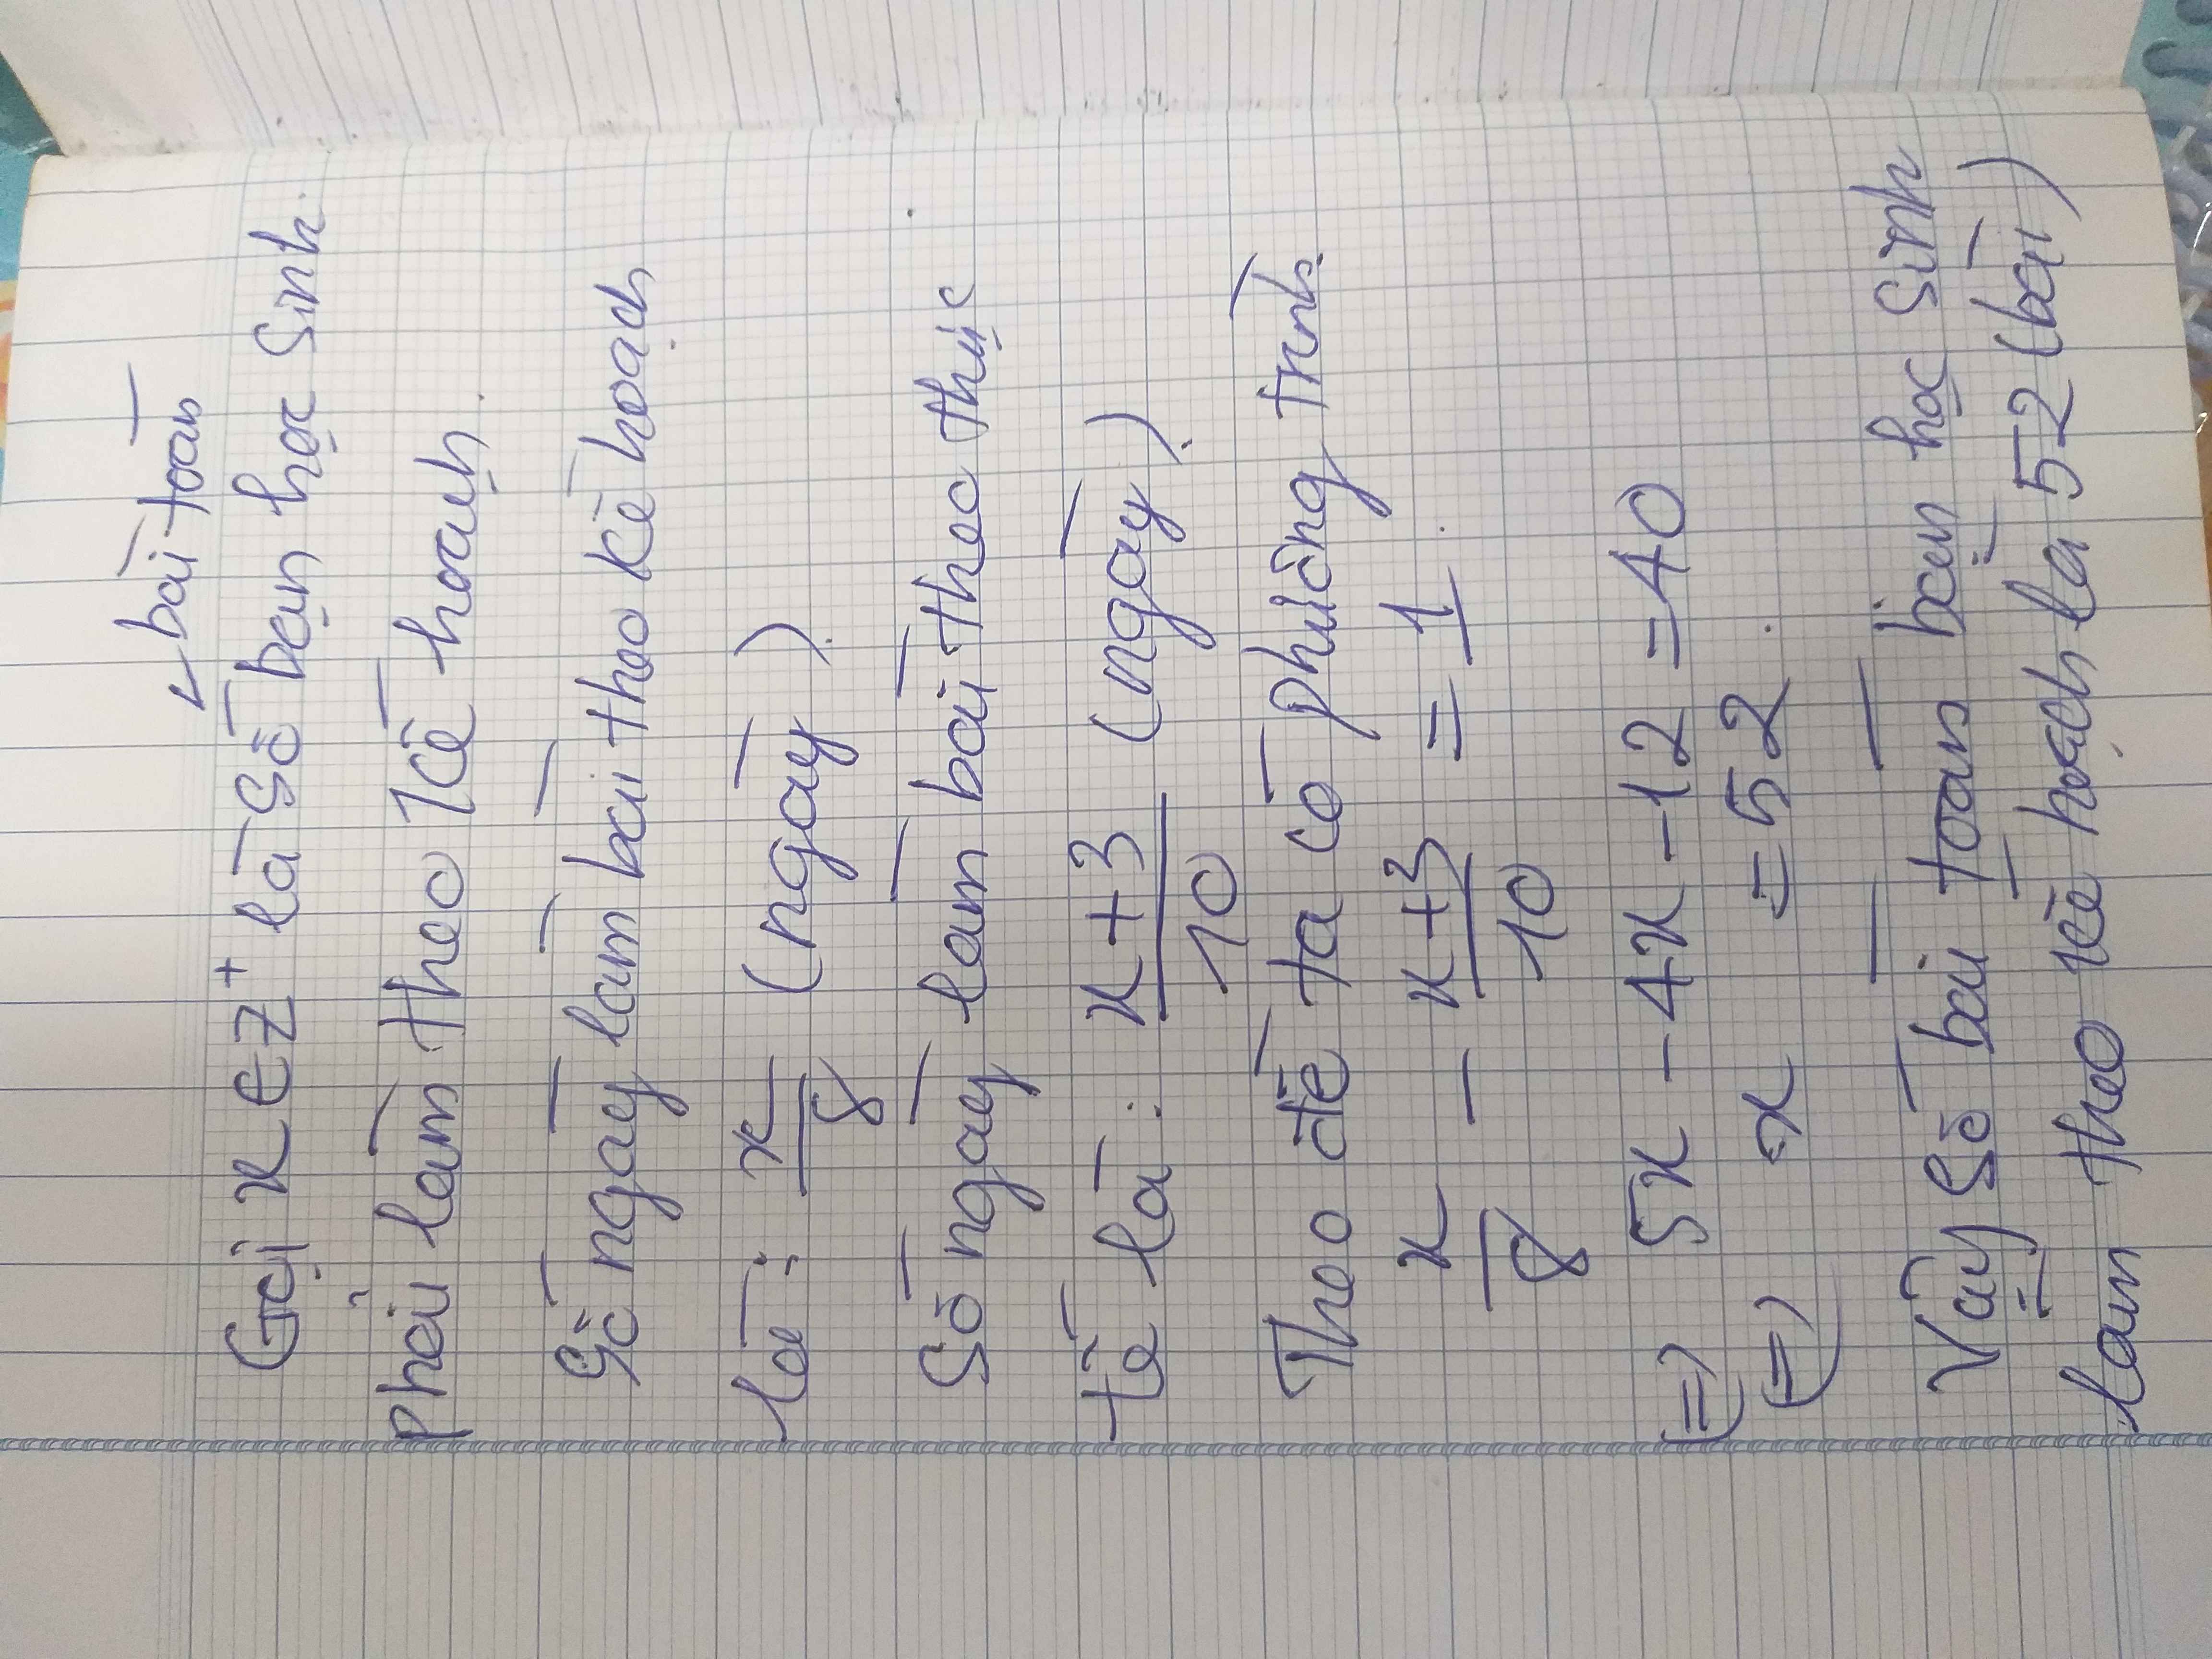 bài toán
Gọi x ∈ Z⁺ là số bạn học sinh.
phải làm theo kế hoạch.
Số ngày làm bài theo kế hoạch
là : x/8 (ngày).
Số ngày làm bài theo thực
tế là : x+3/10 (ngày).
Theo đề ta có phương trình
x/8 - x+3/10 = 1.
(=) 5x - 4x - 12 = 40
(=) x = 52.
Vậy số bài toán bạn học sinh
làm theo kế hoạch là 52 (bài)